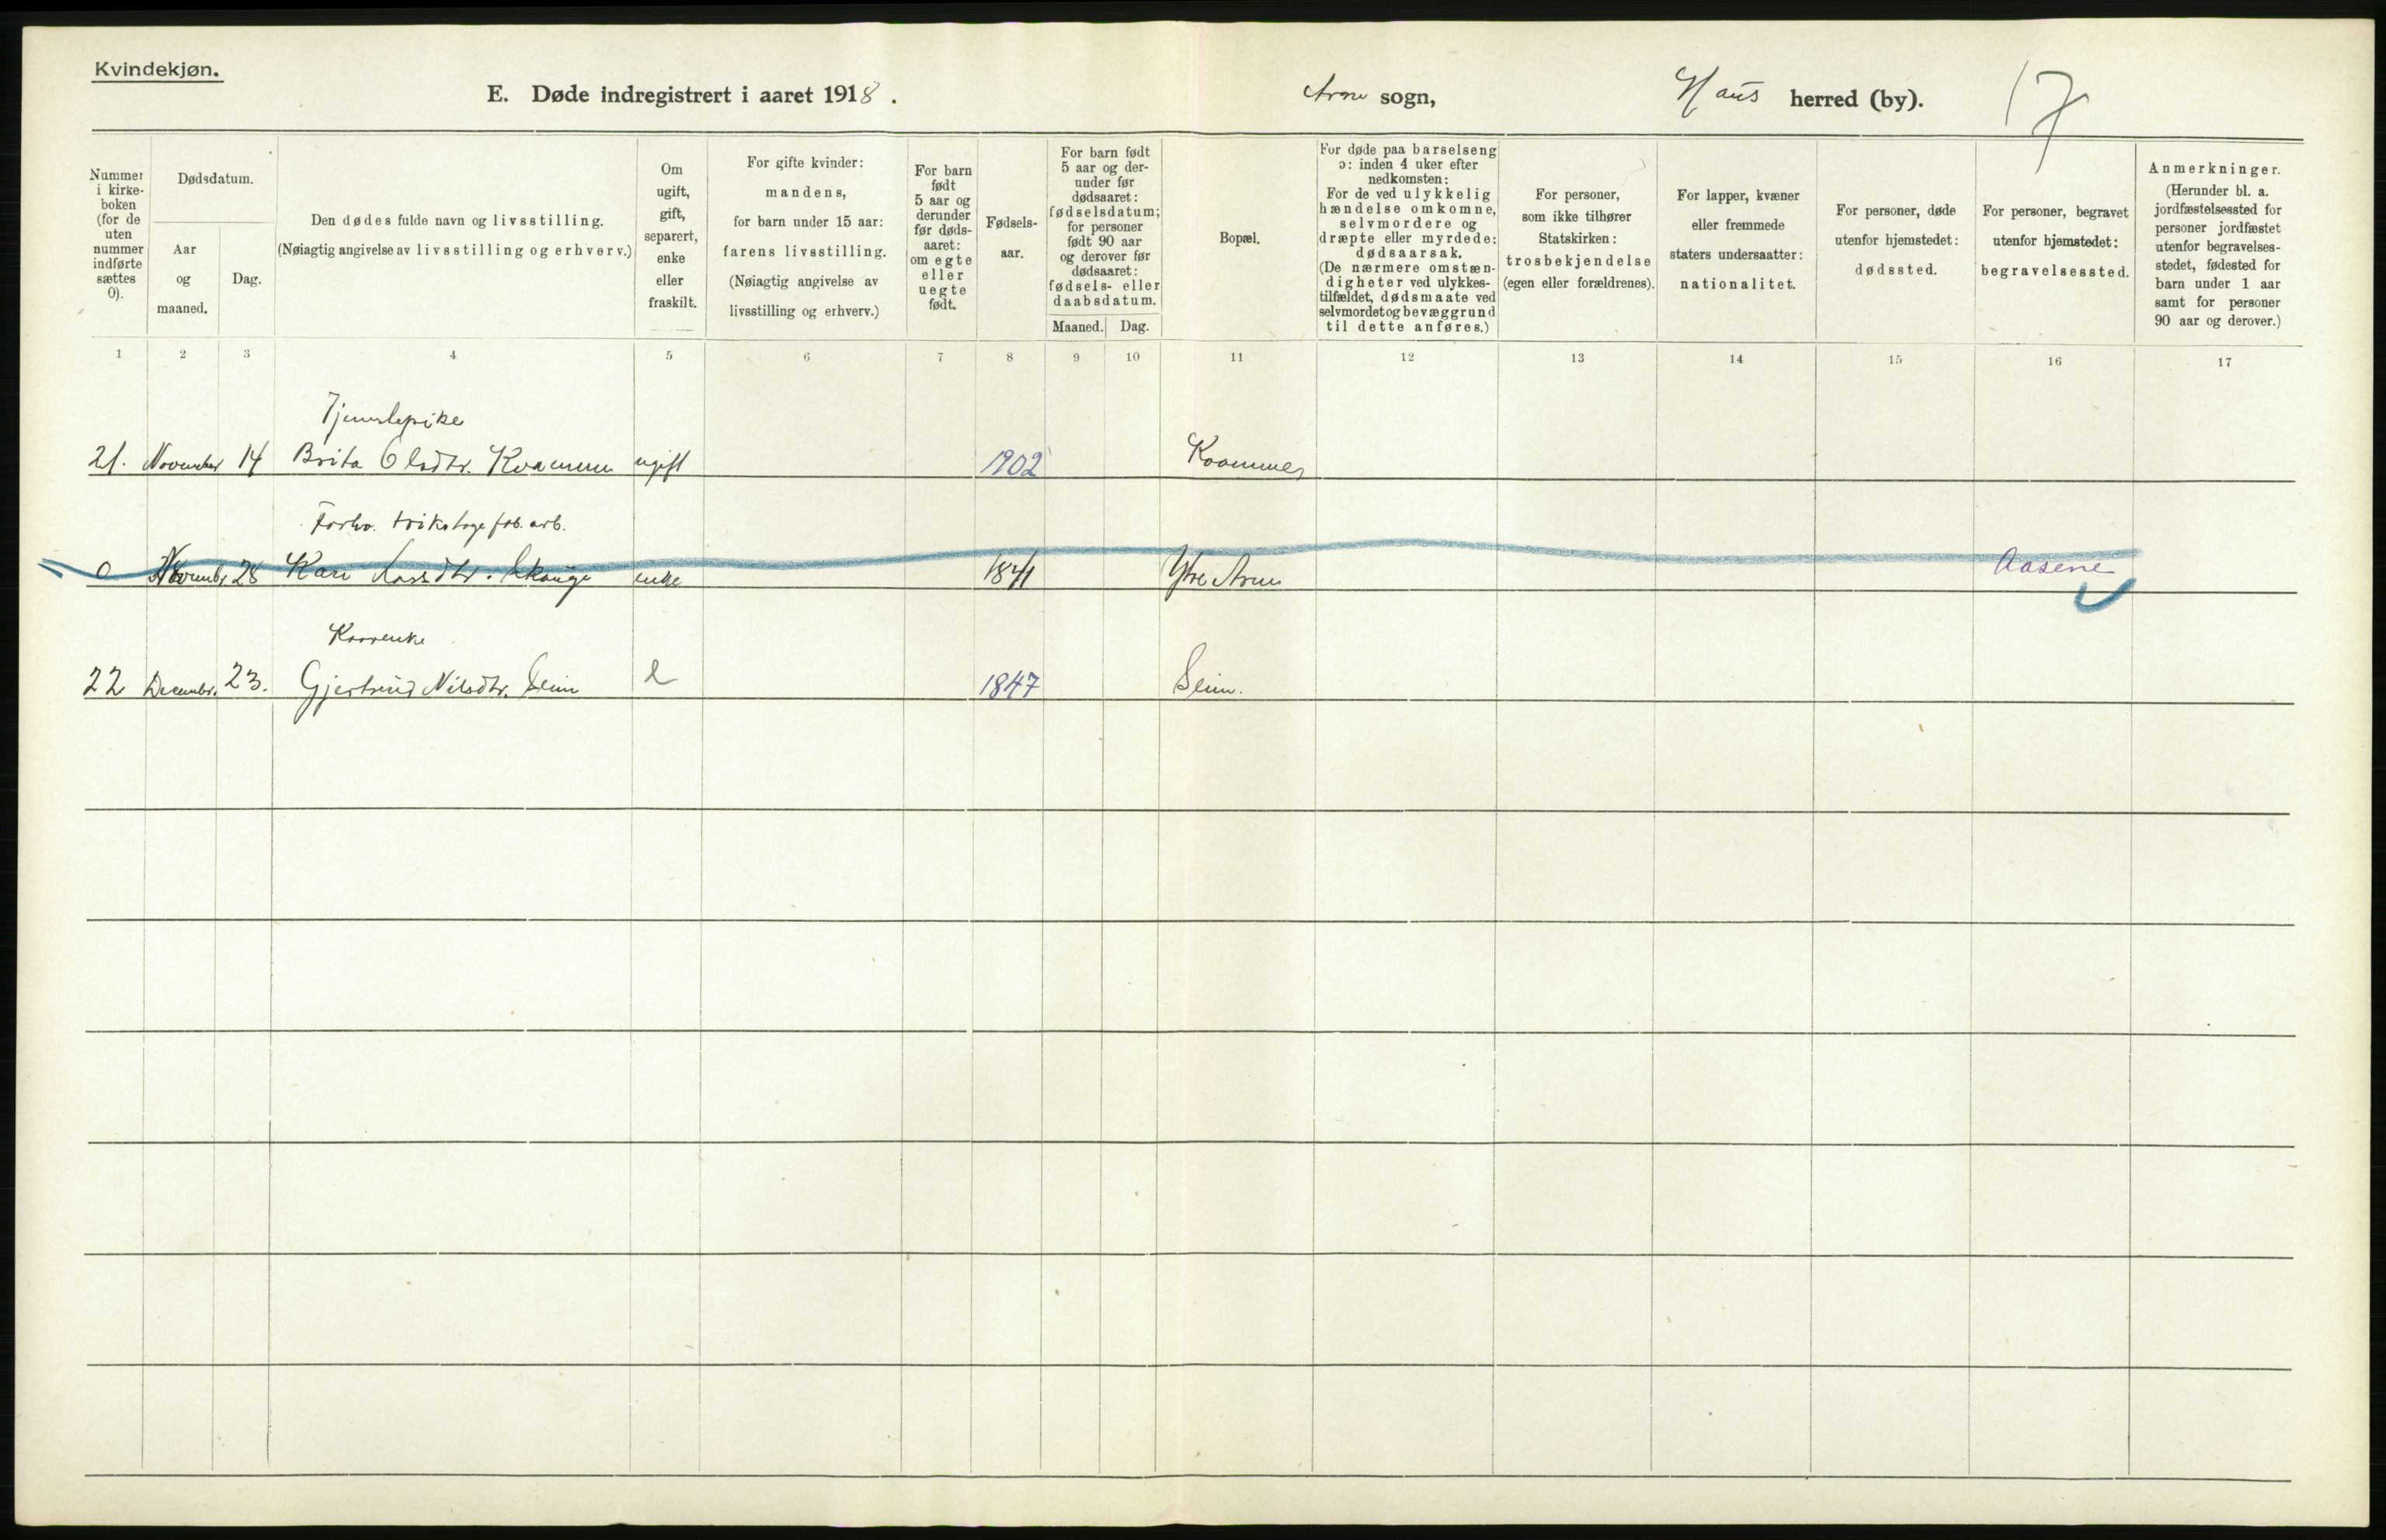 Kvindekjøn.
E. Døde indregistrert i aaret 1918.
Arne sogn,
Haus herred (by).
17
Nummer
i kirke-
boken
(for de
uten
nummer
indførte
sættes
0).
Dødsdatum.
Aar
og
maaned.
Dag.
Den dødes fulde navn og livsstilling.
(Nøiagtig angivelse av livsstilling og erhverv.)
Om
ugift,
gift,
separert,
enke
eller
fraskilt.
For gifte kvinder:
mandens,
for barn under 15 aar:
farens livsstilling.
(Nøiagtig angivelse av
livsstilling og erhverv.)
For barn
født
5 aar og
derunder
før døds-
aaret:
om egte
eller
uegte
født.
Fødsels-
aar.
For barn født
5 aar og der-
under før
dødsaaret:
fødselsdatum;
for personer
født 90 aar
og derover før
dødsaaret:
fødsels- eller
daabsdatum.
Maaned. Dag.
Bopæl.
For døde paa barselseng
ɔ: inden 4 uker efter
nedkomsten:
For de ved ulykkelig
hændelse omkomne,
selvmordere og
dræpte eller myrdede:
dødsaarsak.
(De nærmere omstæn-
digheter ved ulykkes-
tilfældet, dødsmaate ved
selvmordet og bevæggrund
til dette anføres.)
For personer,
som ikke tilhører
Statskirken:
trosbekjendelse
(egen eller forældrenes).
For lapper, kvæner
eller fremmede
staters undersaatter:
nationalitet.
For personer, døde
utenfor hjemstedet:
dødssted.
For personer, begravet
utenfor hjemstedet:
begravelsessted.
Anmerkninger.
(Herunder bl. a.
jordfæstelsessted for
personer jordfæstet
utenfor begravelses-
stedet, fødested for
barn under 1 aar
samt for personer
90 aar og derover.)
1 2 3 4 5 6 7 8 9 10 11 12 13 14 15 16 17
Tjenestepike
21. November 14 Brita Olsdtr. Kvammen ugift 1902 Kvammen
Forhv. trikotagefab. arb.
0 Novembr 28 Kari Larsdtr. Skauge enke 1841 Ytre Arne Aasene
Kaarenke
22 Decembr. 23. Gjertrud Nilsdtr. Seim e 1847 Seim.